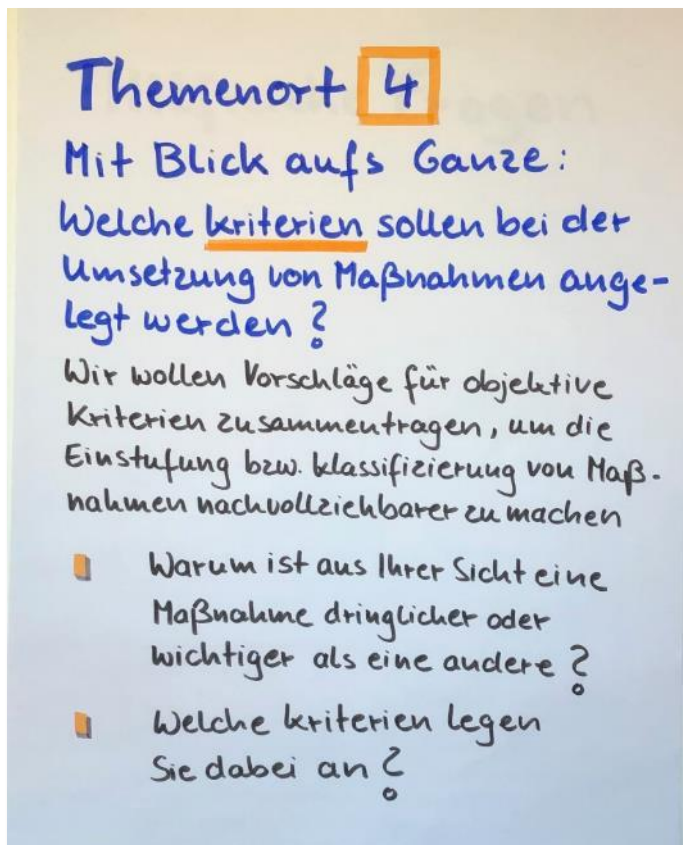 Themenort 4
Mit Blick aufs Ganze:
Welche Kriterien sollen bei der
Umsetzung von Maßnahmen ange-
legt werden?
Wir wollen Vorschläge für objektive
Kriterien zusammentragen, um die
Einstufung bzw. Klassifizierung von Maß-
nahmen nachvollziehbarer zu machen
Warum ist aus Ihrer Sicht eine
Maßnahme dringlicher oder
wichtiger als eine andere?
Welche Kriterien legen
Sie dabei an?